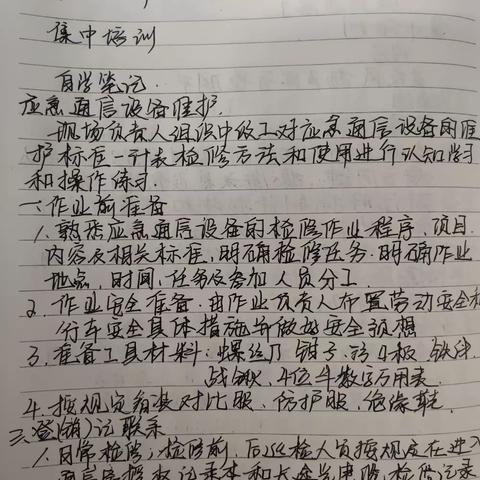 集中培训
自学笔记.
应急通信设备维护.
现场负责人组织中级工对应急通信设备的维
护标准、仪表检修方法和使用进行认知学习
和操作练习.
一、作业前准备
1. 熟悉应急通信设备的检修作业程序、项目、
内容及相关标准,明确检修任务.明确作业
地点,时间,任务及参加人员分工.
2. 作业安全准备.由作业负责人布置劳动安全和
行车安全具体措施并做好安全预想
3. 准备工具材料:螺丝刀 钳子、活口板 铁锹
战锹、4位半数字万用表.
4. 按规定着装对比服、防护服,绝缘鞋.
二、登(销)记联系
1. 日常检修;检修前,后巡检人员按规定在进入